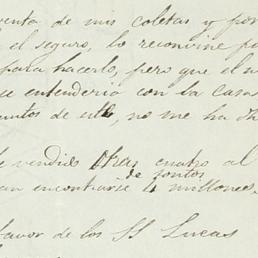 venta de mis coletas y por
el seguro, lo reconvine pa
para hacerlo, pero que el
se entenderia con la Casa
puntos de, no me ha dh
vendido cuatro al
de tontos
an encontrarse 4 millones
favor de los SS Lucas